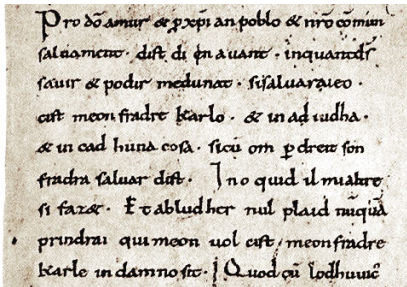 Pro dō amur & p xp̄i an poblo & nr̄o cōmun
saluament. dist di en auant. inquantd̄s
sauir & podir medunat. sisaluaraieo.
cist meon fradre karlo. & in adiudha.
& in cad huna cosa. sicū om p̲ dreit son
fradra saluar dift. Ino quid il mialtre
si faz&. Et abludher nul plaid nūquā
prindrai qui meon uol cist. meonfradre
karle in damno sit. Quod cū lodhuuic̄